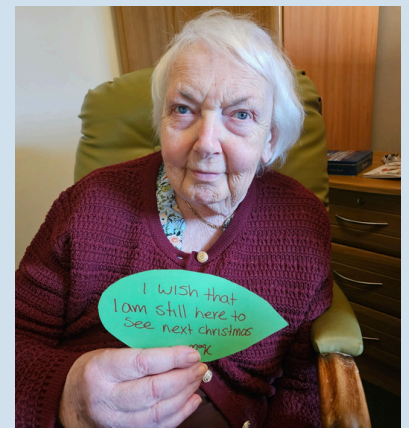 I wish that
I am still here to
See next christmas